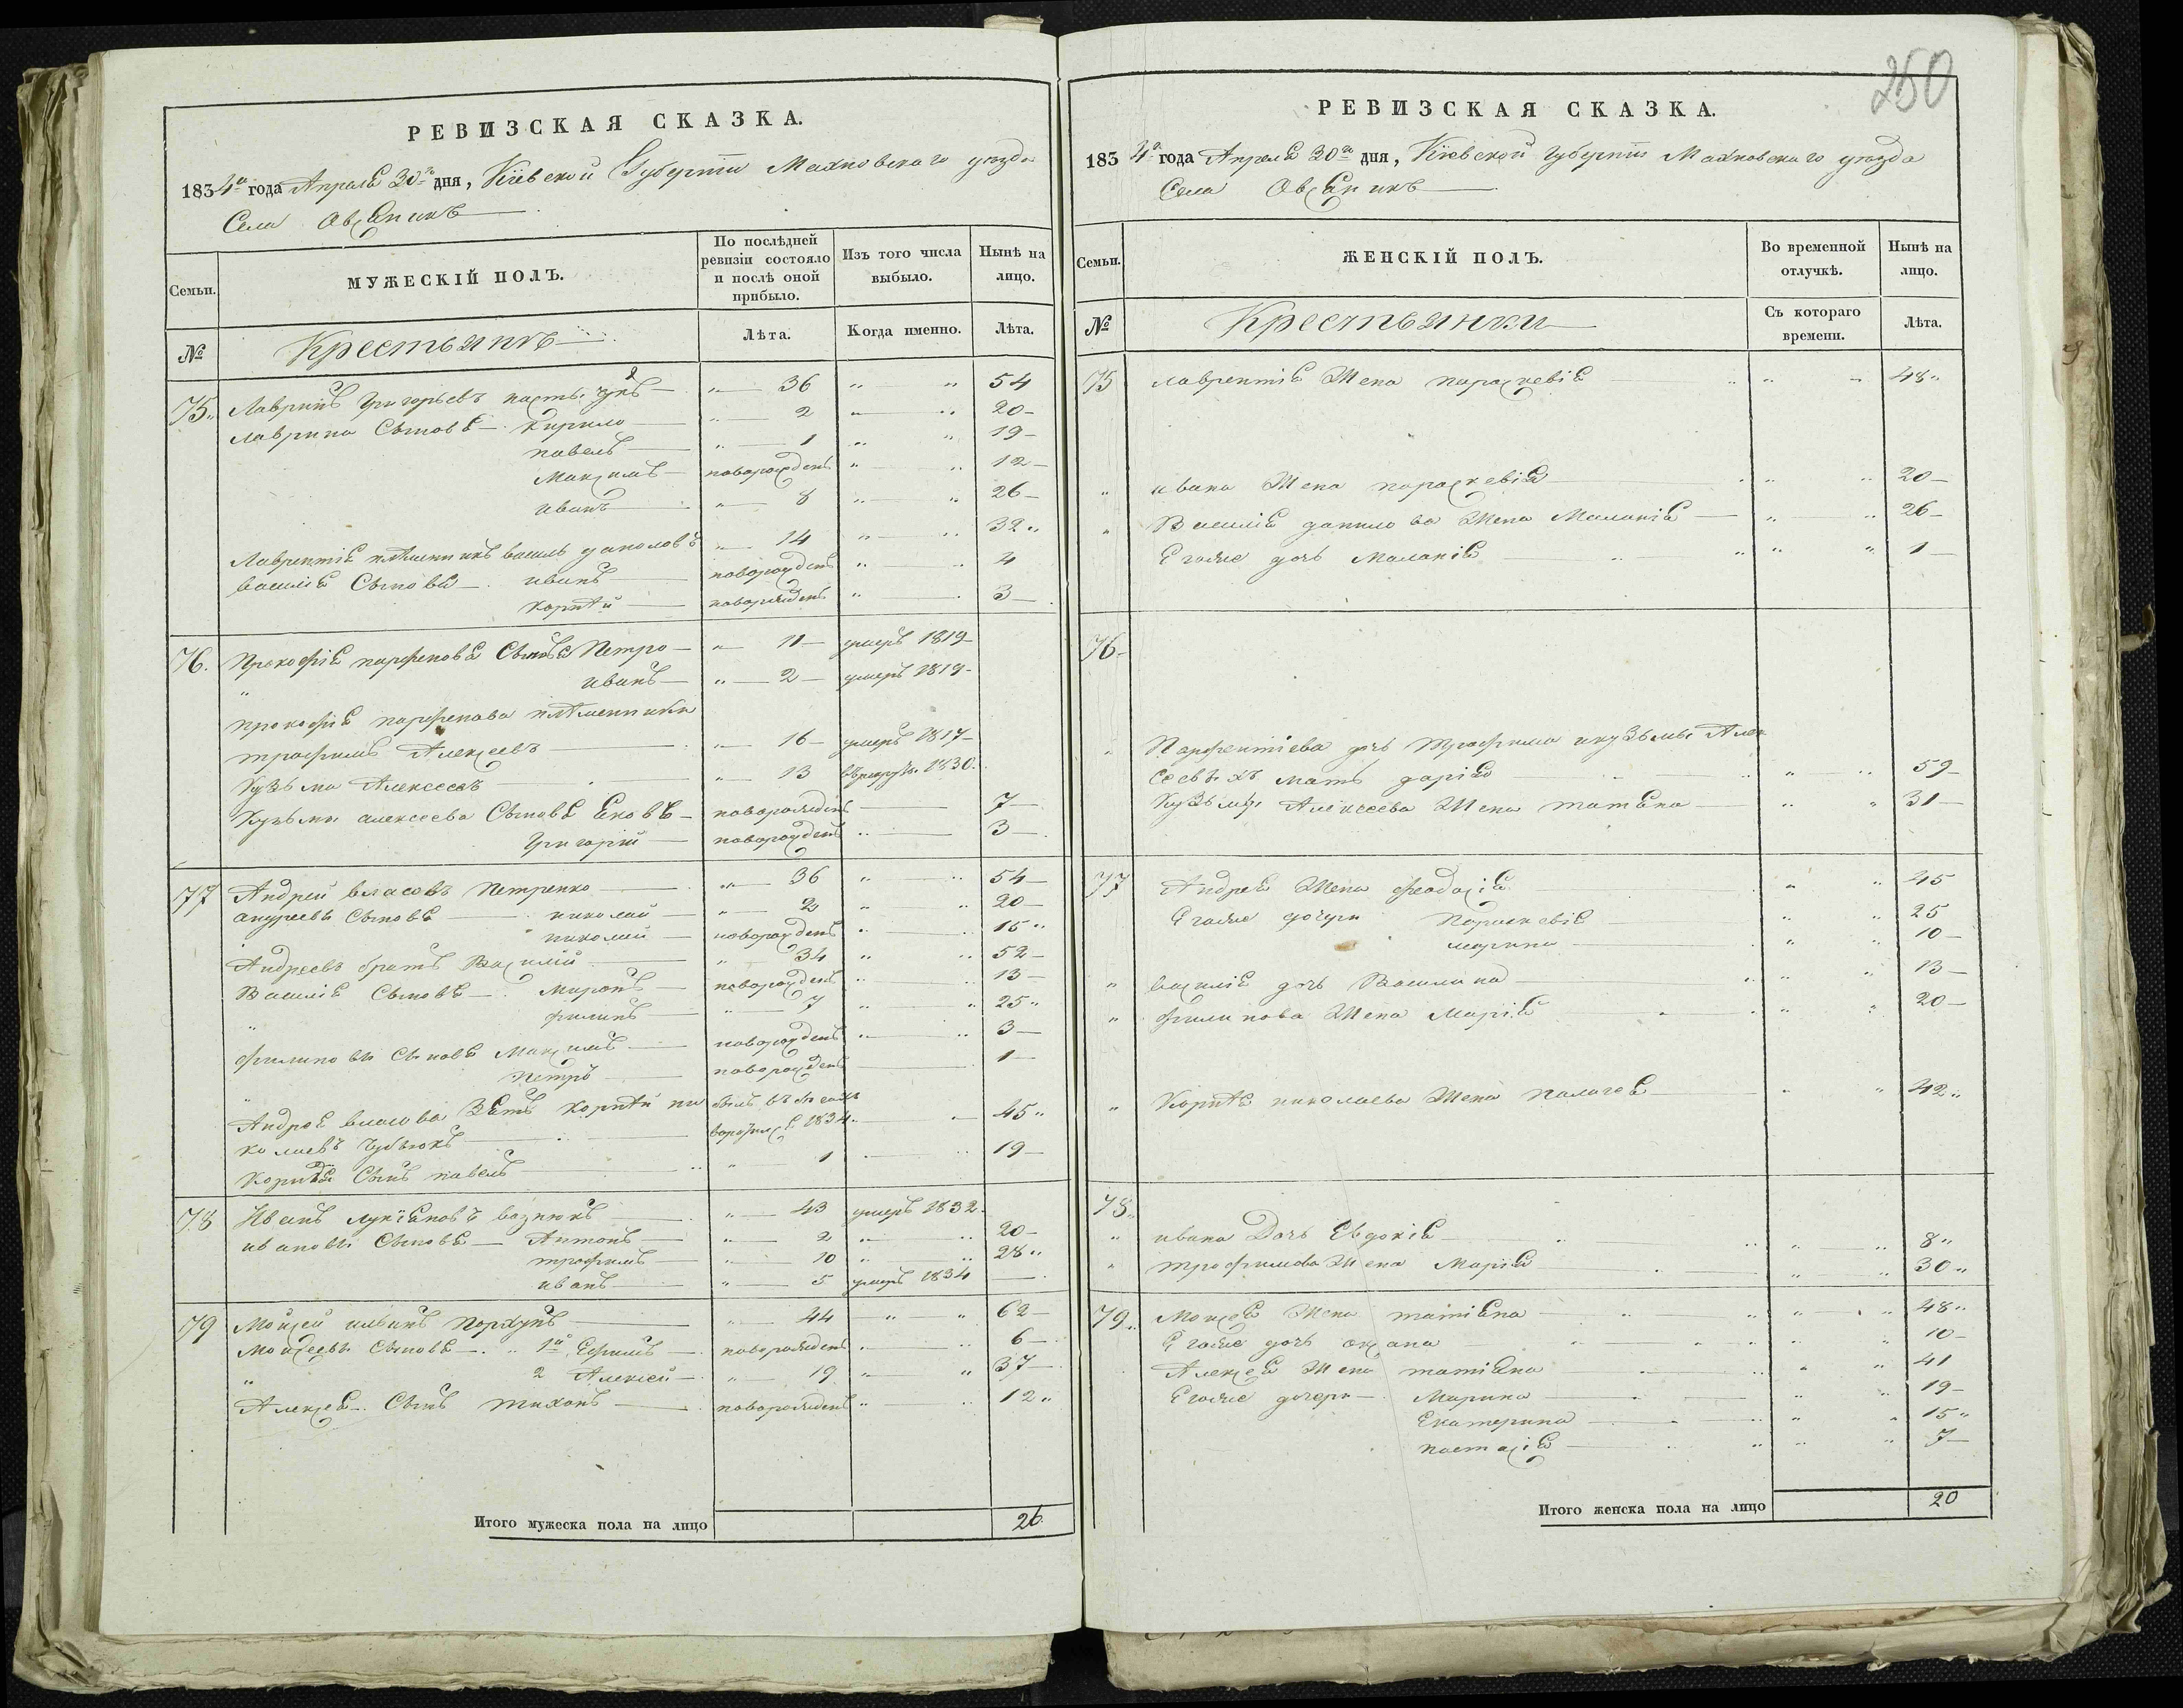 РЕВИЗСКАЯ СКАЗКА.
1834го года Апреля 30го дня, Кіевской Губерніи Махновскаго уезда
Села Овсяникъ
Семьи.
МУЖЕСКІЙ ПОЛЪ.
По послѣдней ревизіи состояло и послѣ оной прибыло.
Изъ того числа выбыло.
Нынѣ на лицо.
№
Крестьянъ
Лѣта.
Когда именно.
Лѣта.
75. Лавринъ Григорьевъ 36 54
Лаврина Сыновя Кирило 2 20
павелъ 1 19
Максимъ новорожденъ 12
иванъ 8 26
Лаврентія племеникъ василь даниловъ 14 32
василія Сыновя иванъ новорожденъ 4
корнѣй новорожденъ 3
76. Прокофія парфенова Сыновя Петро 11 умеръ 1819
иванъ 2 умеръ 1819
прокофія парфенова племенники
трофимъ Алексеевъ 16 умеръ 1817
Кузьма Алексеевъ 13 1830
Кузьмы алексеева Сыновя Яковъ новорожденъ 7
Григорій новорожденъ 3
77 Андрей власовъ Петренко 36 54
андреевы Сыновя николай 2 20
николай новорожденъ 15
Андреевъ братъ Василій 34 52
Василія Сыновя Миронъ новорожденъ 13
филипъ 7 25
филиповы Сыновя Максимъ новорожденъ 3
Петръ новорожденъ 1
Андрея власова Зять корнѣй ни
колаевъ 1834 45
Корнѣя Сынъ павелъ 1 19
78 Иванъ лукіяновъ вознюкъ 43 умеръ 1832
ивановы Сыновя Антонъ 2 20
трофимъ 10 28
иванъ 5 умеръ 1834
79 Мойсей 44 62
Мойсеевы Сыновя 1й Ефимъ новорожденъ 6
2 Алексей 19 37
Алексея Сынъ тихонъ новорожденъ 12
Итого мужеска пола на лицо 26
250
РЕВИЗСКАЯ СКАЗКА.
1834го года Апреля 30го дня, Кіевской губерніи Махновскаго уезда
Села Овсяникъ
Семьи.
ЖЕНСКІЙ ПОЛЪ.
Во временной отлучкѣ.
Нынѣ на лицо.
№
Крестьянки
Съ котораго времени.
Лѣта.
75 лаврентія Жена параскевія 48
ивана Жена параскевія 20
Василія данилова Жена Маланія 26
Егоже дочь Маланія 1
76
дочь Трофима икузьмы Алек
сеевыхъ мать дарія 59
Кузьмы Алексеева Жена татяна 31
77 Андрея Жена феодосія 45
Егоже дочери Параскевія 25
марина 10
василія дочь Василина 13
филипова Жена Марія 20
Корнѣя николаева Жена палагея 42
78
ивана Дочь Евдокія 8
трофимова Жена Марія 30
79 Мойсея Жена татіяна 48
Егоже дочь оксана 10
Алексея Жена татіяна 41
Егоже дочери Марина 19
Екатерина 15
настасія 7
Итого женска пола на лицо 20